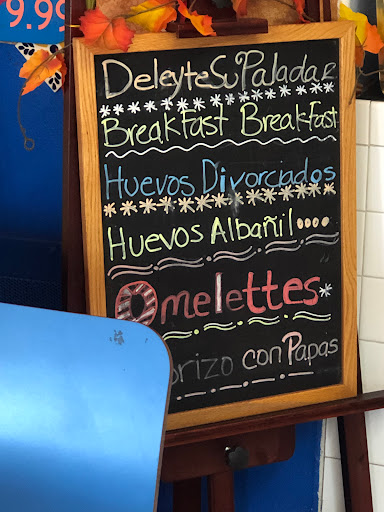 9.99
Deleyte Su Paladar
BreakFast BreakFast
Huevos Divorciados
Huevos Albañil....
Omelettes
orizo con Papas